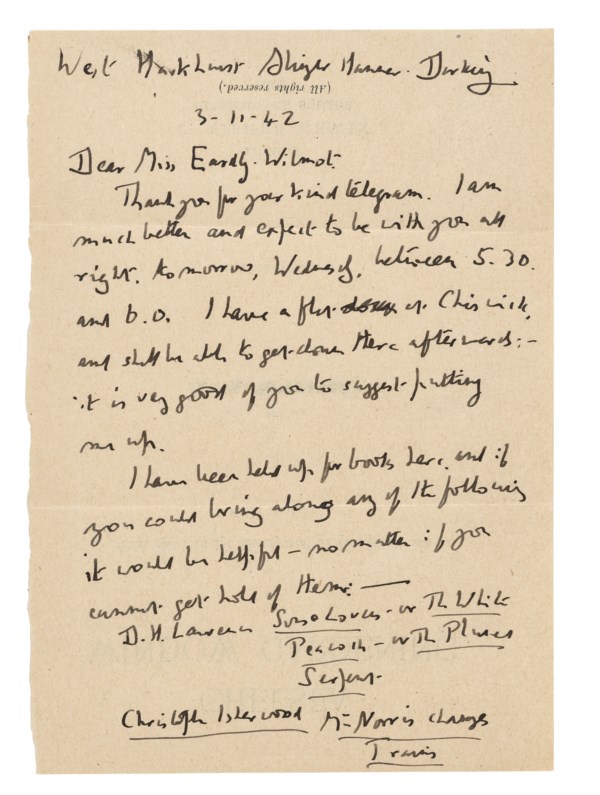 West Hackhurst Abinger Hammer. Dorking
(All rights reserved.)
3-11-42
Dear Miss Eardly-Wilmot.
Thank you for your kind telegram. I am
much better and expect to be with you all
right, tomorrow, Wednesdy, between 5.30.
and 6.0. I have a flat at Chiswick,
and shall be able to get down there afterwards:-
it is very good of you to suggest putting
me up.
I have been held up for books here, and if
you could bring along any of the following
it would be helpful - no matter if you
cannot get hold of them: —
D. H. Lawrence Sons & Lovers - or The White
Peacock - or The Plumed
Serpent.
Christopher Isherwood Mr Norris changes
Trains